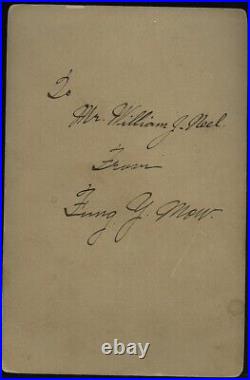 To
Mr. William J. Neel
From
Fung Y. Mow.